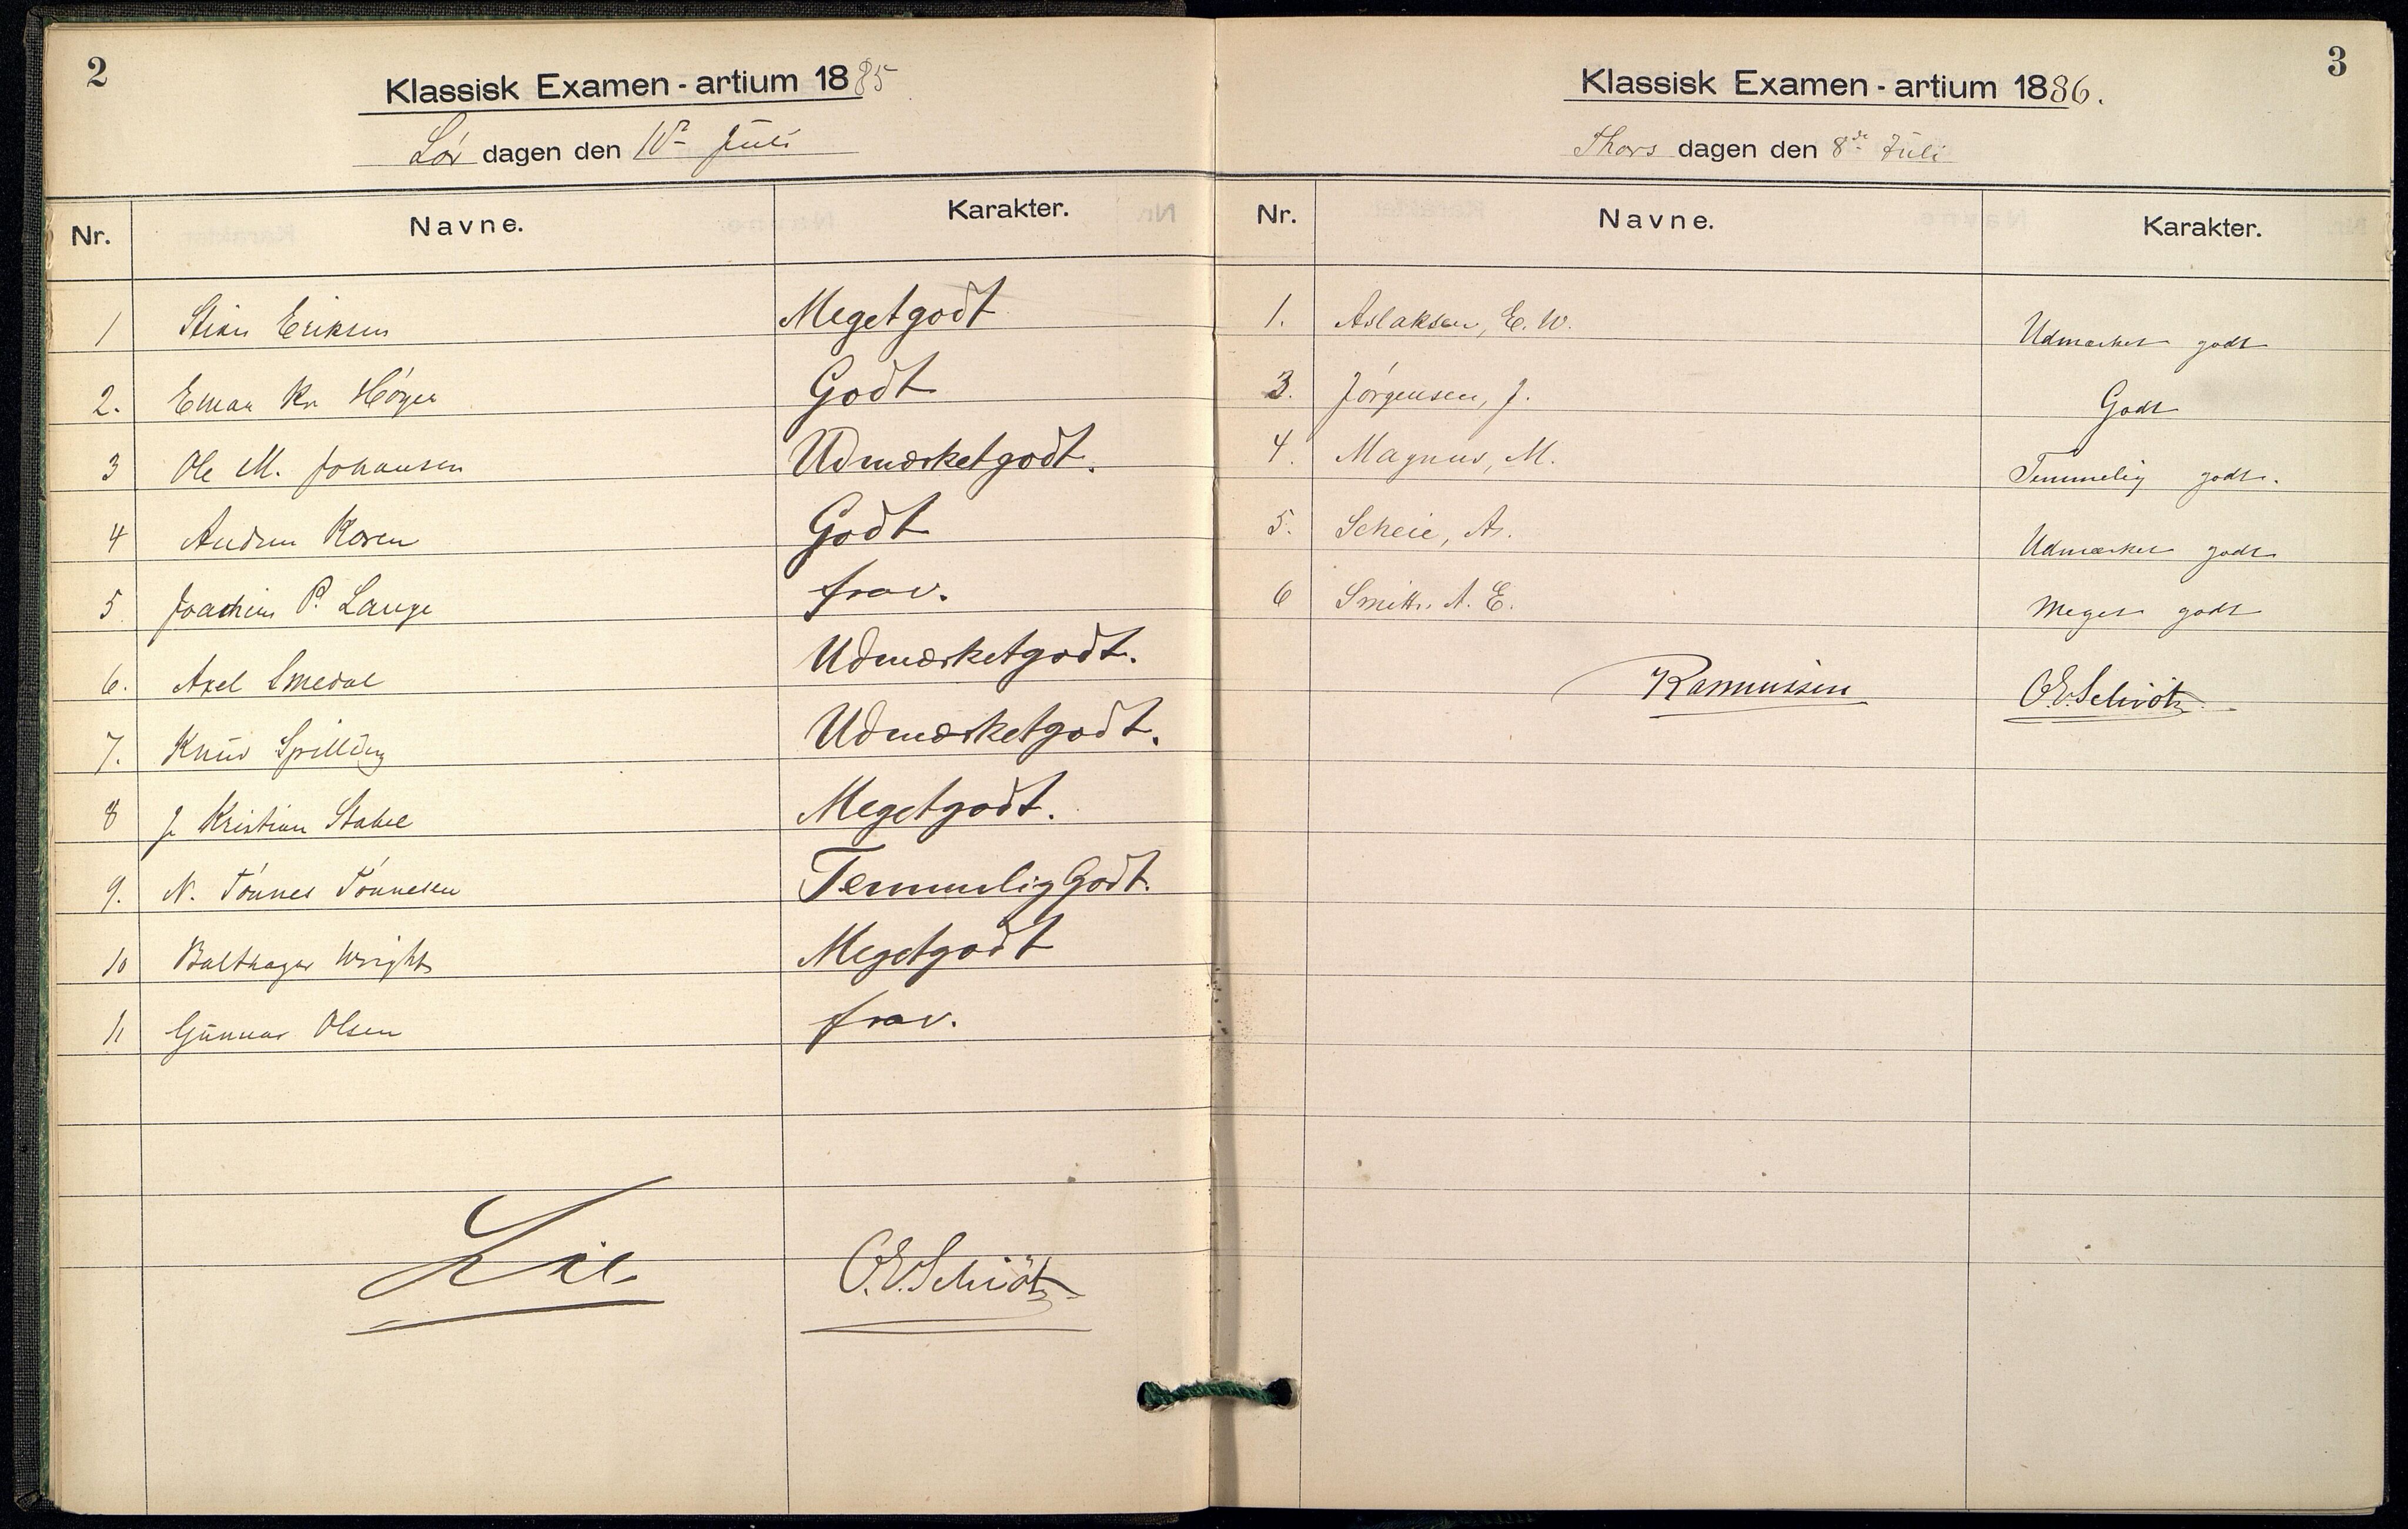 2
Klassisk Examen - artium 1885
Lør dagen den Juli
Nr. Navne. Karakter.
1 Eriksen Megetgodt
2. Einar Kr Høyer Godt
3 Ole M. Johansen Udmærketgodt.
4 Koren Godt
5 Joachim P. Lange frav.
6. Axel Smedal Udmærketgodt.
7. Knud Spilling Udmærketgodt.
8 J. Kristian Stabel Megetgodt.
9. N. Tönnes Tönnesen Temmelig Godt.
10 Balthazar Wright Megetgodt
11 Gunnar Olsen frav.
Lie
O.E.Schiötz
3
Klassisk Examen - artium 1886.
Thors dagen den 8de Juli
Nr. Navne. Karakter.
1. Aslaksen, E. W. Udmærket godt
3. Jörgensen, J. Godt
4. Magnus, M. Temmelig godt.
5. Scheie, As. Udmærket godt
6 Smith. A. E. Meget godt
Rasmussen O.E.Schiötz